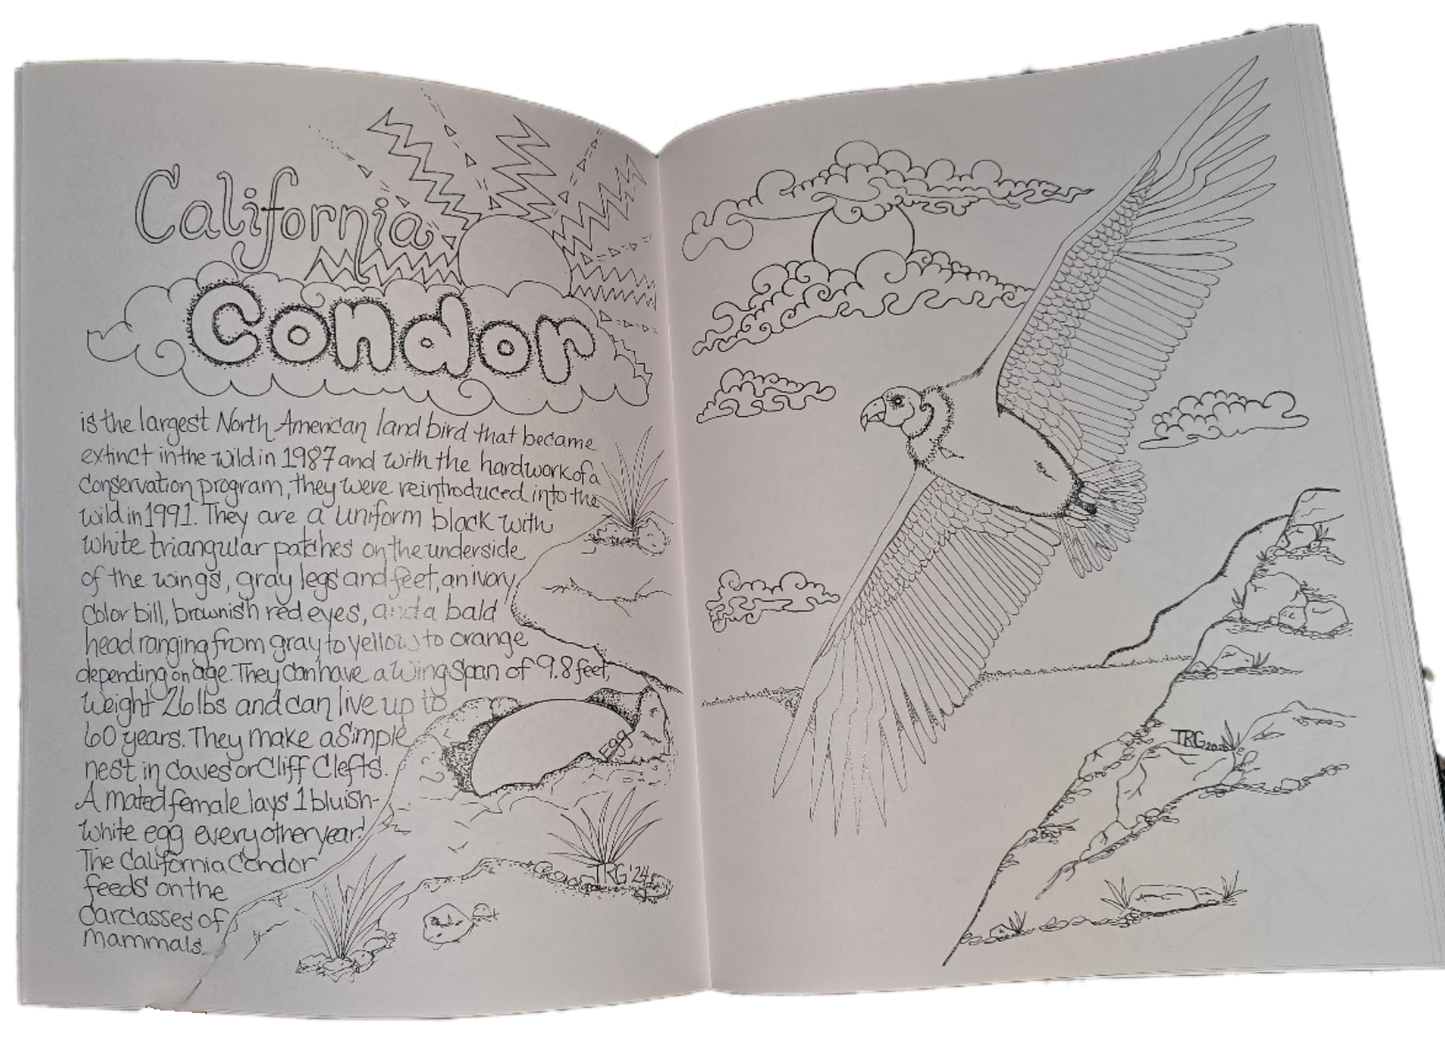 California
Condor
is the largest North American land bird that became
extinct in the wild in 1987 and with the hard work of a
conservation program, they were reintroduced into the
wild in 1991. They are a uniform black with
white triangular patches on the underside
of the wings, gray legs and feet, an ivory
color bill, brownish red eyes, and a bald
head ranging from gray to yellow to orange
depending on age. They can have a wing span of 9.8 feet,
weight 26 lbs and can live up to
60 years. They make a simple
nest in caves or Cliff Clefts.
A mated female lays 1 bluish-
white egg every other year!
The California Condor
feeds on the
carcasses of
mammals.
Egg
TRG '24
TRG